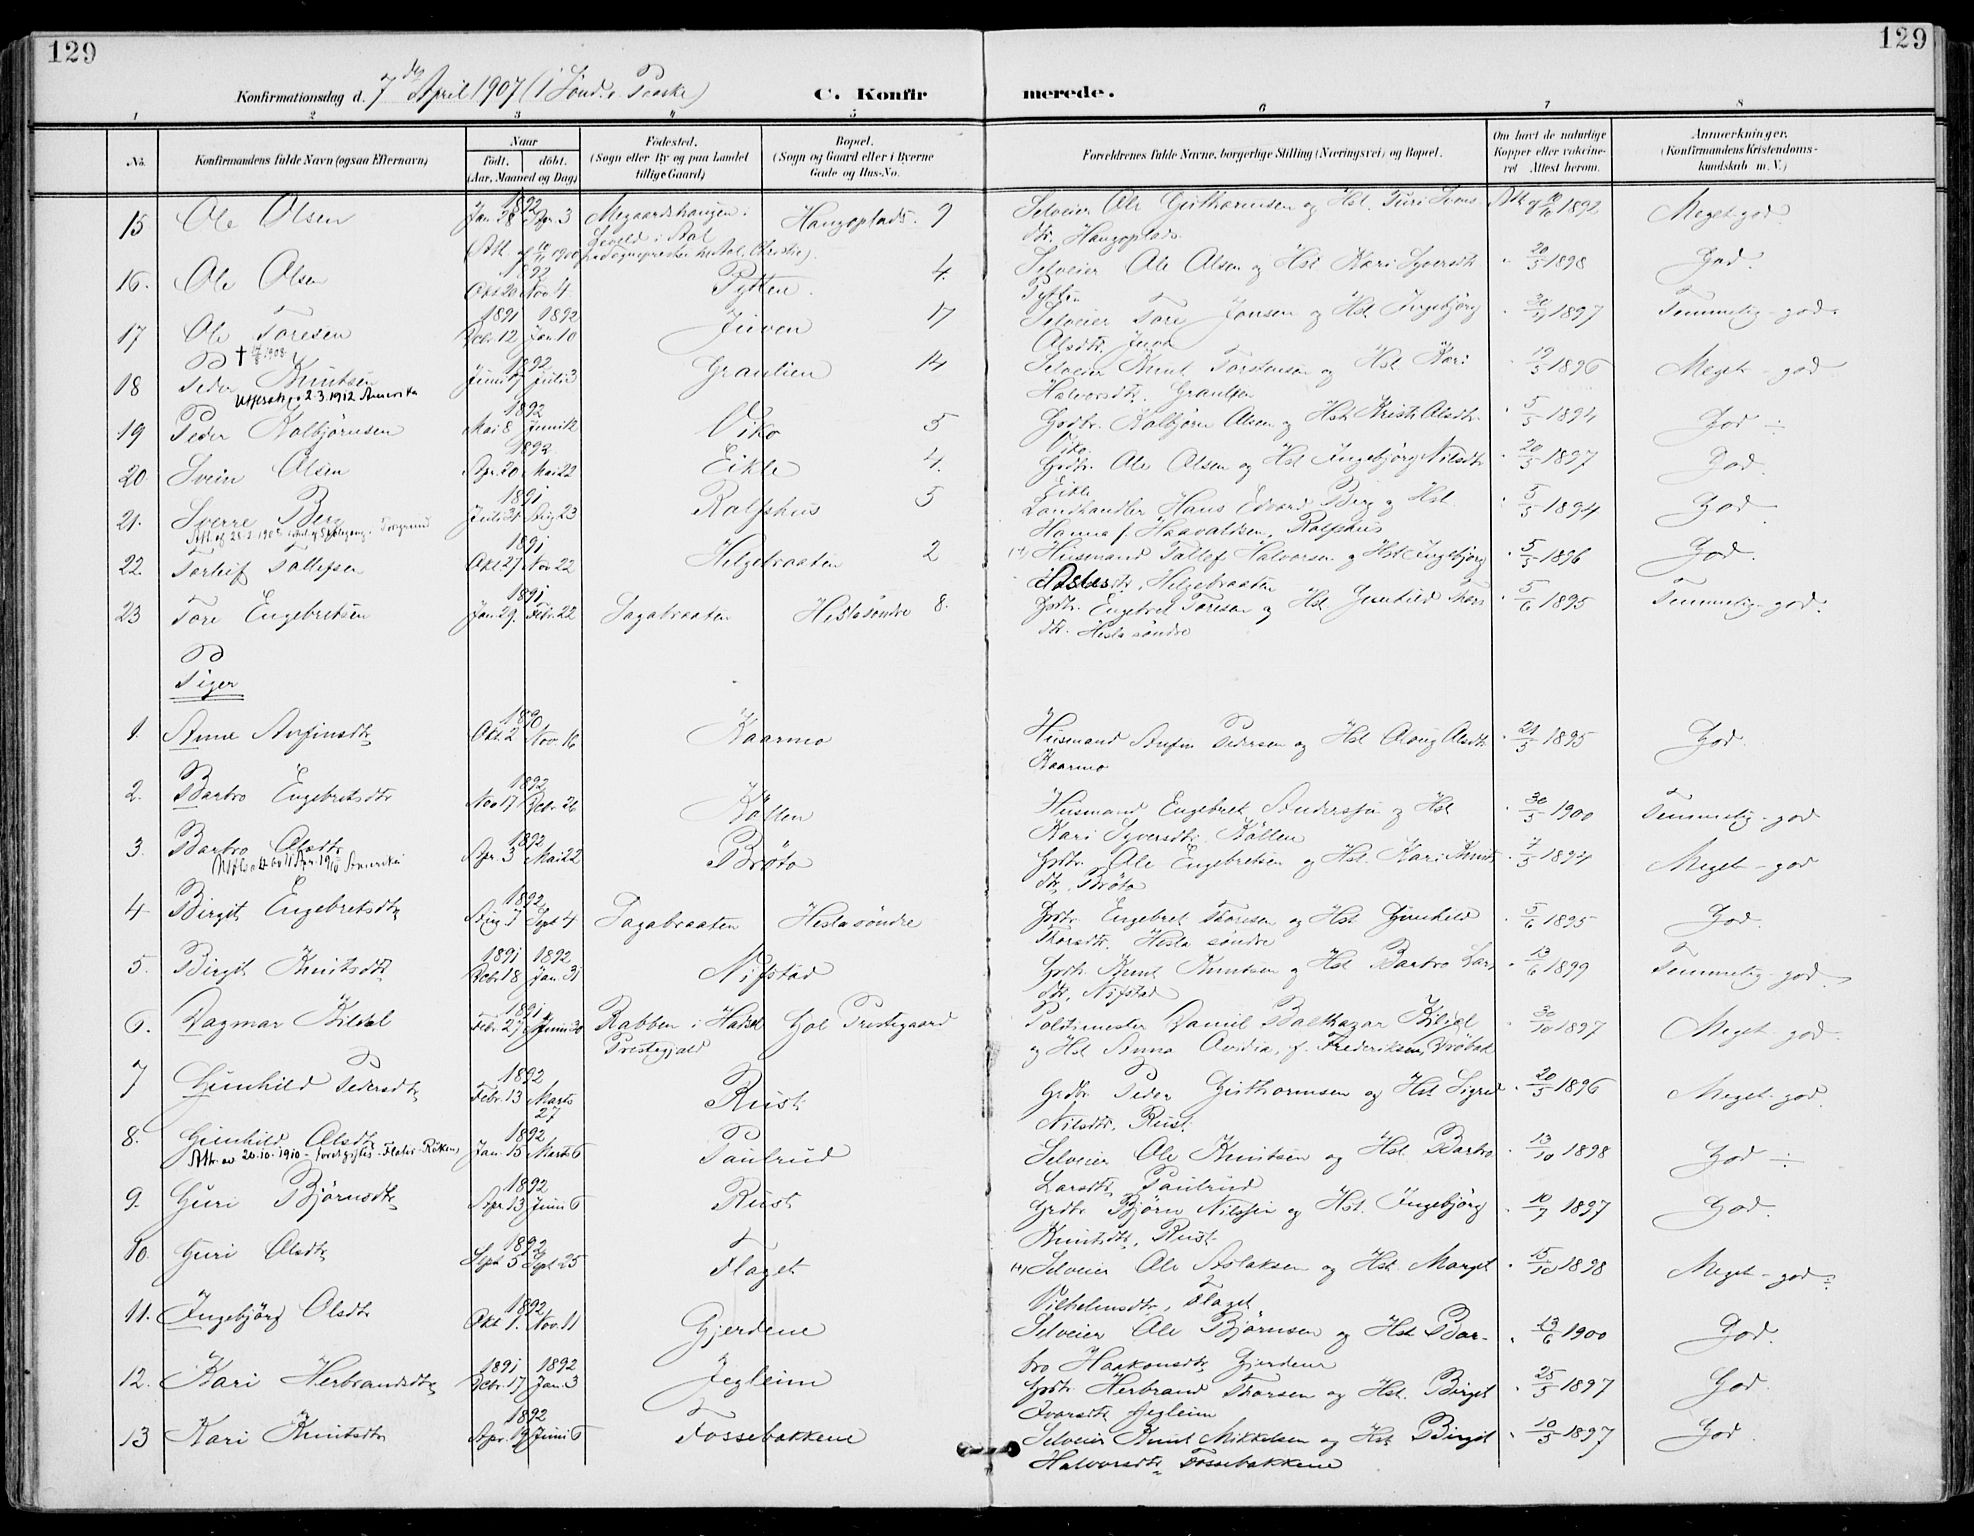 129
129
Konfirmationsdag d. 7de April 1907 (1 Sönd. e. Paaske)
C. Konfirmerede.
1 2 3 4 5 6 7 8
No. Konfirmandens fulde Navn (ogsaa Efternavn) Naar födt, döbt. (Aar, Maaned og Dag) Födested. (Sogn eller By og paa Landet tillige Gaard) Bopæl. (Sogn og Gaard eller i Byerne Gade og Hus-No. Forældrenes fulde Navne, borgerlige Stilling (Næringsvei) og Bopæl. Om havt de naturlige Kopper eller vakcineret Attest herom. Anmærkninger. (Konfirmandens Kristendomskundskab m. V.)
15 Ole Olsen 1892 Jan. 28 Apr. 3 Haugsplads. 9 Selveier Ole Guthormsen og Hst. Guri Att. af 1892 Meget god
dtr. Haugsplads.
16. Ole Olsen 1892 Okt. 20 Nov. 4 Pytten. 4. Selveier Ole Olsen og Hst. Kari Syversdtr 20/5 1898 God.
Pytten
17 Ole Toresen 1891 Dcbr. 12 1892 Jan. 10 Juven 17 Selveier Tore Jonsen og Hst. Ingebjörg 1897 Temmelig - god.
Olsdtr. Juven
18 Peder Knutsen 1892 Juni 7 Juli 3 Grantien 14 Selveier Knut Torstensen og Hst. Kari 1896 Meget - god
Halvorsdtr.
2.3.1912 Amerika
19 Peder Kolbjörnsen 1892 Mai 8 Juni 12 Viko 5 Gbdbr. Kolbjörn Olsen og Hst. Olsdtr. 5/5 1894 God ÷
Viko
20 Svein Olsen 1892 Apr. 20 Mai 22 Eikle 4. Gbdbr. Ole Olsen og Hst Ingebjörg Nilsdtr 20/5 1897 God.
Eikle
21. Sverre Berg 1891 Juli 31 Aug 23 Rolfshus 5 Landhandler Hans Edvard Berg og Hst. 5/5 1894 God
Hanna f. Haavaldsen, Rolfshus
22. Torleif Tollefsen 1891 Okt. 27 Nov 22 Helgebraaten 2 Husmand Tollef Halvorsen og Hst. Ingebjörg 5/5 1896 God.
Helgebraaten
23 Tore Engebretsen 1891 Jan. 29. Febr. 22 Sagabraaten Hesla söndre 8. Gbdbr. Engebret Toresen og Hst. Gunhild Thors 5/6 1895 Temmelig - god.
dtr. Hesla söndre
Piger
1. Anne Arfinsdtr 1890 Okt. 2 Nov. 16 Kaarmo Husmand Arfin Pedersen og Hst Olsdtr. 21/5 1895 God.
Kaarmo
2. Barbro Engebretsdtr 1892 Nov 17 Dcbr. 26 Köllen Husmand Engebret Anderssen og Hst 30/5 1900 Temmelig - god
Kari Syversdtr. Köllen
3. Barbro Olsdtr 1892 Apr. 3 Mai 22 Bröto Gbdbr. Ole Engebretsen og Hst. Kari Knuts 1894 Meget - god
dtr, Bröto
4 Birgit Engebretsdtr 1892 Aug 7 Sept 4 Sagabraaten Hesla söndre Gbdbr. Engebret Thoresen og Hst Gunhild 5/6 1895 God.
Thorsdtr. Hesla söndre
5. Birgit Knutsdtr 1891 Dcbr. 18 1892 Jan. 31 Nifstad Gbdbr. Knut Knutsen og Hst Barbro Lars 13/6 1899 Temmelig - god
dtr, Nifstad
6. Dagmar Kildal 1891 Febr. 27 Juni 30 Rabben i Hadsel Gol Prestegaard Politimester Daniel Balthazar Kildal 30/10 1897 Meget - god.
Prestegjæld og Hst Anna f. Frederiksen, Dröbak
7 Gunhild Pedersdtr 1892 Febr. 13 Marts 27 Rust Gbdbr. Peder Guthormsen og Hst. Sigrid 20/5 1896 Meget - god.
Nilsdtr. Rust.
8. Gunhild Olsdtr 1892 Jan. 15 Marts 6 Paulrud Selveier Ole Knutsen og Hst. Barbro 13/10 1898 God ÷
Att. av 20.10.1910 Larsdtr. Paulrud
9. Guri Björnsdtr 1892 Apr. 13 Juni 6 Rust Gbdbr Björn Nilssen og Hst. Ingebjörg 1897 God.
Knutsdtr. Rust
10. Guri Olsdtr 1892 Sept 5 Sept 25 Flaget Selveier Ole Aslaksen og Hst. Margit 15/10 1898 Meget - god
Vilhelmsdtr, Flaget
11. Ingebjörg Olsdtr 1892 Okt 1. Nov. 11 Gjerdene Selveier Ole Björnsen og Hst Bar- 13/6 1900 God.
bro Haakonsdtr Gjerdene
12. Kari Herbrandsdtr 1891 Dcbr. 17 1892 Jan. 3 Jegleim Gbdbr. Herbrand Thorsen og Hst. Birgit 25/5 1897 God
Ivarsdtr Jegleim
13 Kari Knutsdtr 1892 Apr. 19 Juni 6 Fossebakkene Selveier Knut Mikkelsen og Hst Birgit 10/5 1897 God
Halvorsdtr Fossebakkene